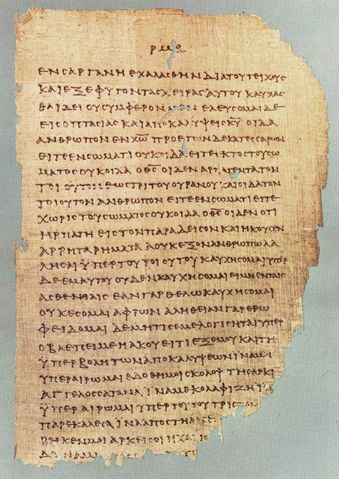 ΕΝ ΣΑΡΓΑΝΗ ΕΧΑΛΑΣΘΗΝ ΔΙΑ ΤΟΥ ΤΕΙΧΟΥΣ
ΚΑΙ ΕΞΕΦΥΓΟΝ ΤΑΣ ΧΕΙΡΑΣ ΑΥΤΟΥ ΚΑΥΧΑΣ
ΘΑΙ ΔΕΙ ΟΥ ΣΥΜΦΕΡΟΝ ΜΕΝ ΕΛΕΥΣΟΜΑΙ ΔΕ
ΕΙΣ ΟΠΤΑΣΙΑΣ ΚΑΙ ΑΠΟΚΑΛΥΨΕΙΣ Κ̅Υ̅ ΟΙΔΑ
ΑΝΘΡΩΠΟΝ ΕΝ Χ̅Ω̅ ΠΡΟ ΕΤΩΝ ΔΕΚΑΤΕΣΣΑΡΩΝ
ΕΙΤΕ ΕΝ ΣΩΜΑΤΙ ΟΥΚ ΟΙΔΑ ΕΙΤΕ ΕΚΤΟΣ ΤΟΥ ΣΩ
ΜΑΤΟΣ ΟΥΚ ΟΙΔΑ Ο Θ̅Σ̅ ΟΙΔΕΝ ΑΡΠΑΓΕΝΤΑ ΤΟΝ
ΤΟΙΟΥΤΟΝ ΕΩΣ ΤΡΙΤΟΥ ΟΥΡΑΝΟΥ ΚΑΙ ΟΙΔΑ ΤΟΝ
ΤΟΙΟΥΤΟΝ ΑΝΘΡΩΠΟΝ ΕΙΤΕ ΕΝ ΣΩΜΑΤΙ ΕΙΤΕ
ΧΩΡΙΣ ΤΟΥ ΣΩΜΑΤΟΣ ΟΥΚ ΟΙΔΑ Ο Θ̅Σ̅ ΟΙΔΕΝ ΟΤΙ
ΗΡΠΑΓΗ ΕΙΣ ΤΟΝ ΠΑΡΑΔΕΙΣΟΝ ΚΑΙ ΗΚΟΥΣΕΝ
ΑΡΡΗΤΑ ΡΗΜΑΤΑ Α ΟΥΚ ΕΞΟΝ ΑΝΘΡΩΠΩ ΛΑ
ΛΗΣΑΙ ΥΠΕΡ ΤΟΥ ΤΟΙΟΥΤΟΥ ΚΑΥΧΗΣΟΜΑΙ ΥΠΕΡ
ΔΕ ΕΜΑΥΤΟΥ ΟΥΔΕΝ ΚΑΥΧΗΣΟΜΑΙ ΕΙ ΜΗ ΕΝ ΤΑΙΣ
ΑΣΘΕΝΕΙΑΙΣ ΕΑΝ ΓΑΡ ΘΕΛΩ ΚΑΥΧΗΣΟΜΑΙ
ΟΥΚ ΕΣΟΜΑΙ ΑΦΡΩΝ ΑΛΗΘΕΙΑΝ ΓΑΡ ΕΡΩ
ΦΕΙΔΟΜΑΙ ΔΕ ΜΗ ΤΙΣ ΕΜΕ ΛΟΓΙΣΗΤΑΙ ΥΠΕΡ
Ο ΒΛΕΠΕΙ ΜΕ Η ΑΚΟΥΕΙ ΤΙ ΕΞ ΕΜΟΥ ΚΑΙ ΤΗ
ΥΠΕΡΒΟΛΗ ΤΩΝ ΑΠΟΚΑΛΥΨΕΩΝ ΙΝΑ ΜΗ
ΥΠΕΡΑΙΡΩΜΑΙ ΕΔΟΘΗ ΜΟΙ ΣΚΟΛΟΨ ΤΗ ΣΑΡΚΙ
ΑΓΓΕΛΟΣ ΣΑΤΑΝΑ ΙΝΑ ΜΕ ΚΟΛΑΦΙΖΗ Ι
ΥΠΕΡΑΙΡΩΜΑΙ ΥΠΕΡ ΤΟΥΤΟΥ ΤΡΙΣ
ΠΑΡΕΚΑΛΕΣΑ ΙΝΑ ΑΠΟΣΤΗ
ΜΟΙ ΑΡΚΕΙ ΣΟΙ Η ΧΑΡΙΣ